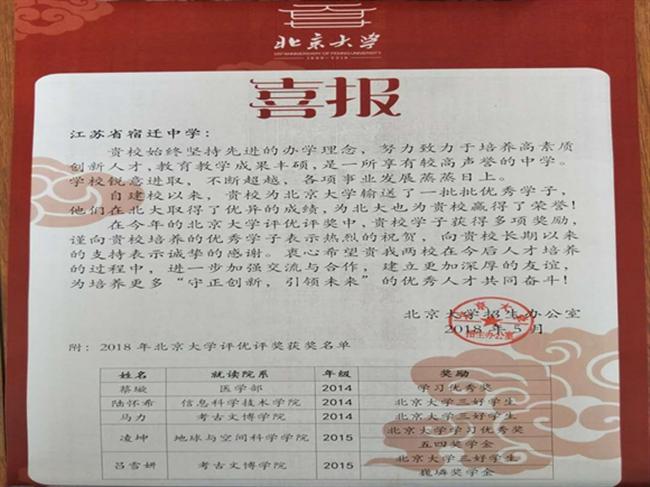 北京大学
120TH ANNIVERSARY OF PEKING UNIVERSITY
1898-2018
喜报
江苏省宿迁中学：
贵校始终坚持先进的办学理念，努力致力于培养高素质
创新人才，教育教学成果丰硕，是一所享有较高声誉的中学。
学校锐意进取，不断超越，各项事业发展蒸蒸日上。
自建校以来，贵校为北京大学输送了一批批优秀学子，
他们在北大取得了优异的成绩，为北大也为贵校赢得了荣誉！
在今年的北京大学评优评奖中，贵校学子获得多项奖励，
谨向贵校培养的优秀学子表示热烈的祝贺，向贵校长期以来
的支持表示诚挚的感谢。衷心希望贵我两校在今后人才培养
的过程中，进一步加强交流与合作，建立更加深厚的友谊，
为培养更多“守正创新，引领未来”的优秀人才共同奋斗！
北京大学招生办公室
2018年5月
北京大学
招生办公室
附：2018年北京大学评优评奖获奖名单
姓名 就读院系 年级 奖励
蔡璇 医学部 2014 学习优秀奖
陆怀希 信息科学技术学院 2014 北京大学三好学生
马力 考古文博学院 2014 北京大学三好学生
凌坤 地球与空间科学学院 2015 北京大学学习优秀奖
五四奖学金
吕雪妍 考古文博学院 2015 北京大学三好学生
巍璘奖学金